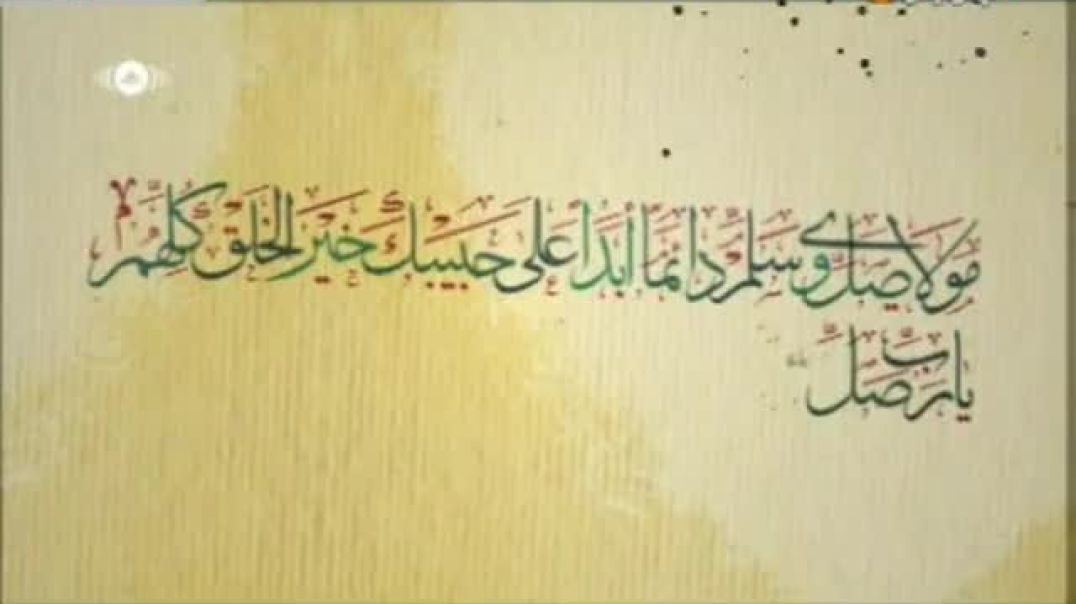 مولاي صل وسلم دائما أبدا على حبيبك خير الخلق كلهم
يا رب صل